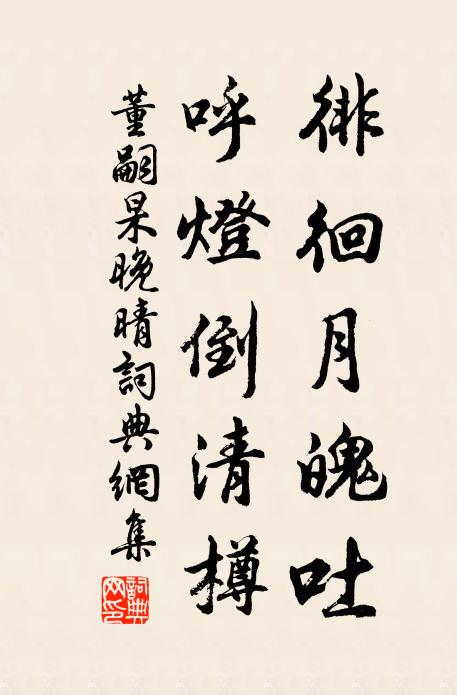 徘徊月魄吐
呼燈倒清樽
董嗣杲晚晴詞典網集
詞典網印